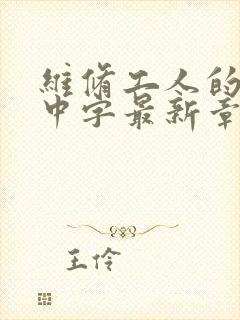 維脩工人的
中字最新章
王伶